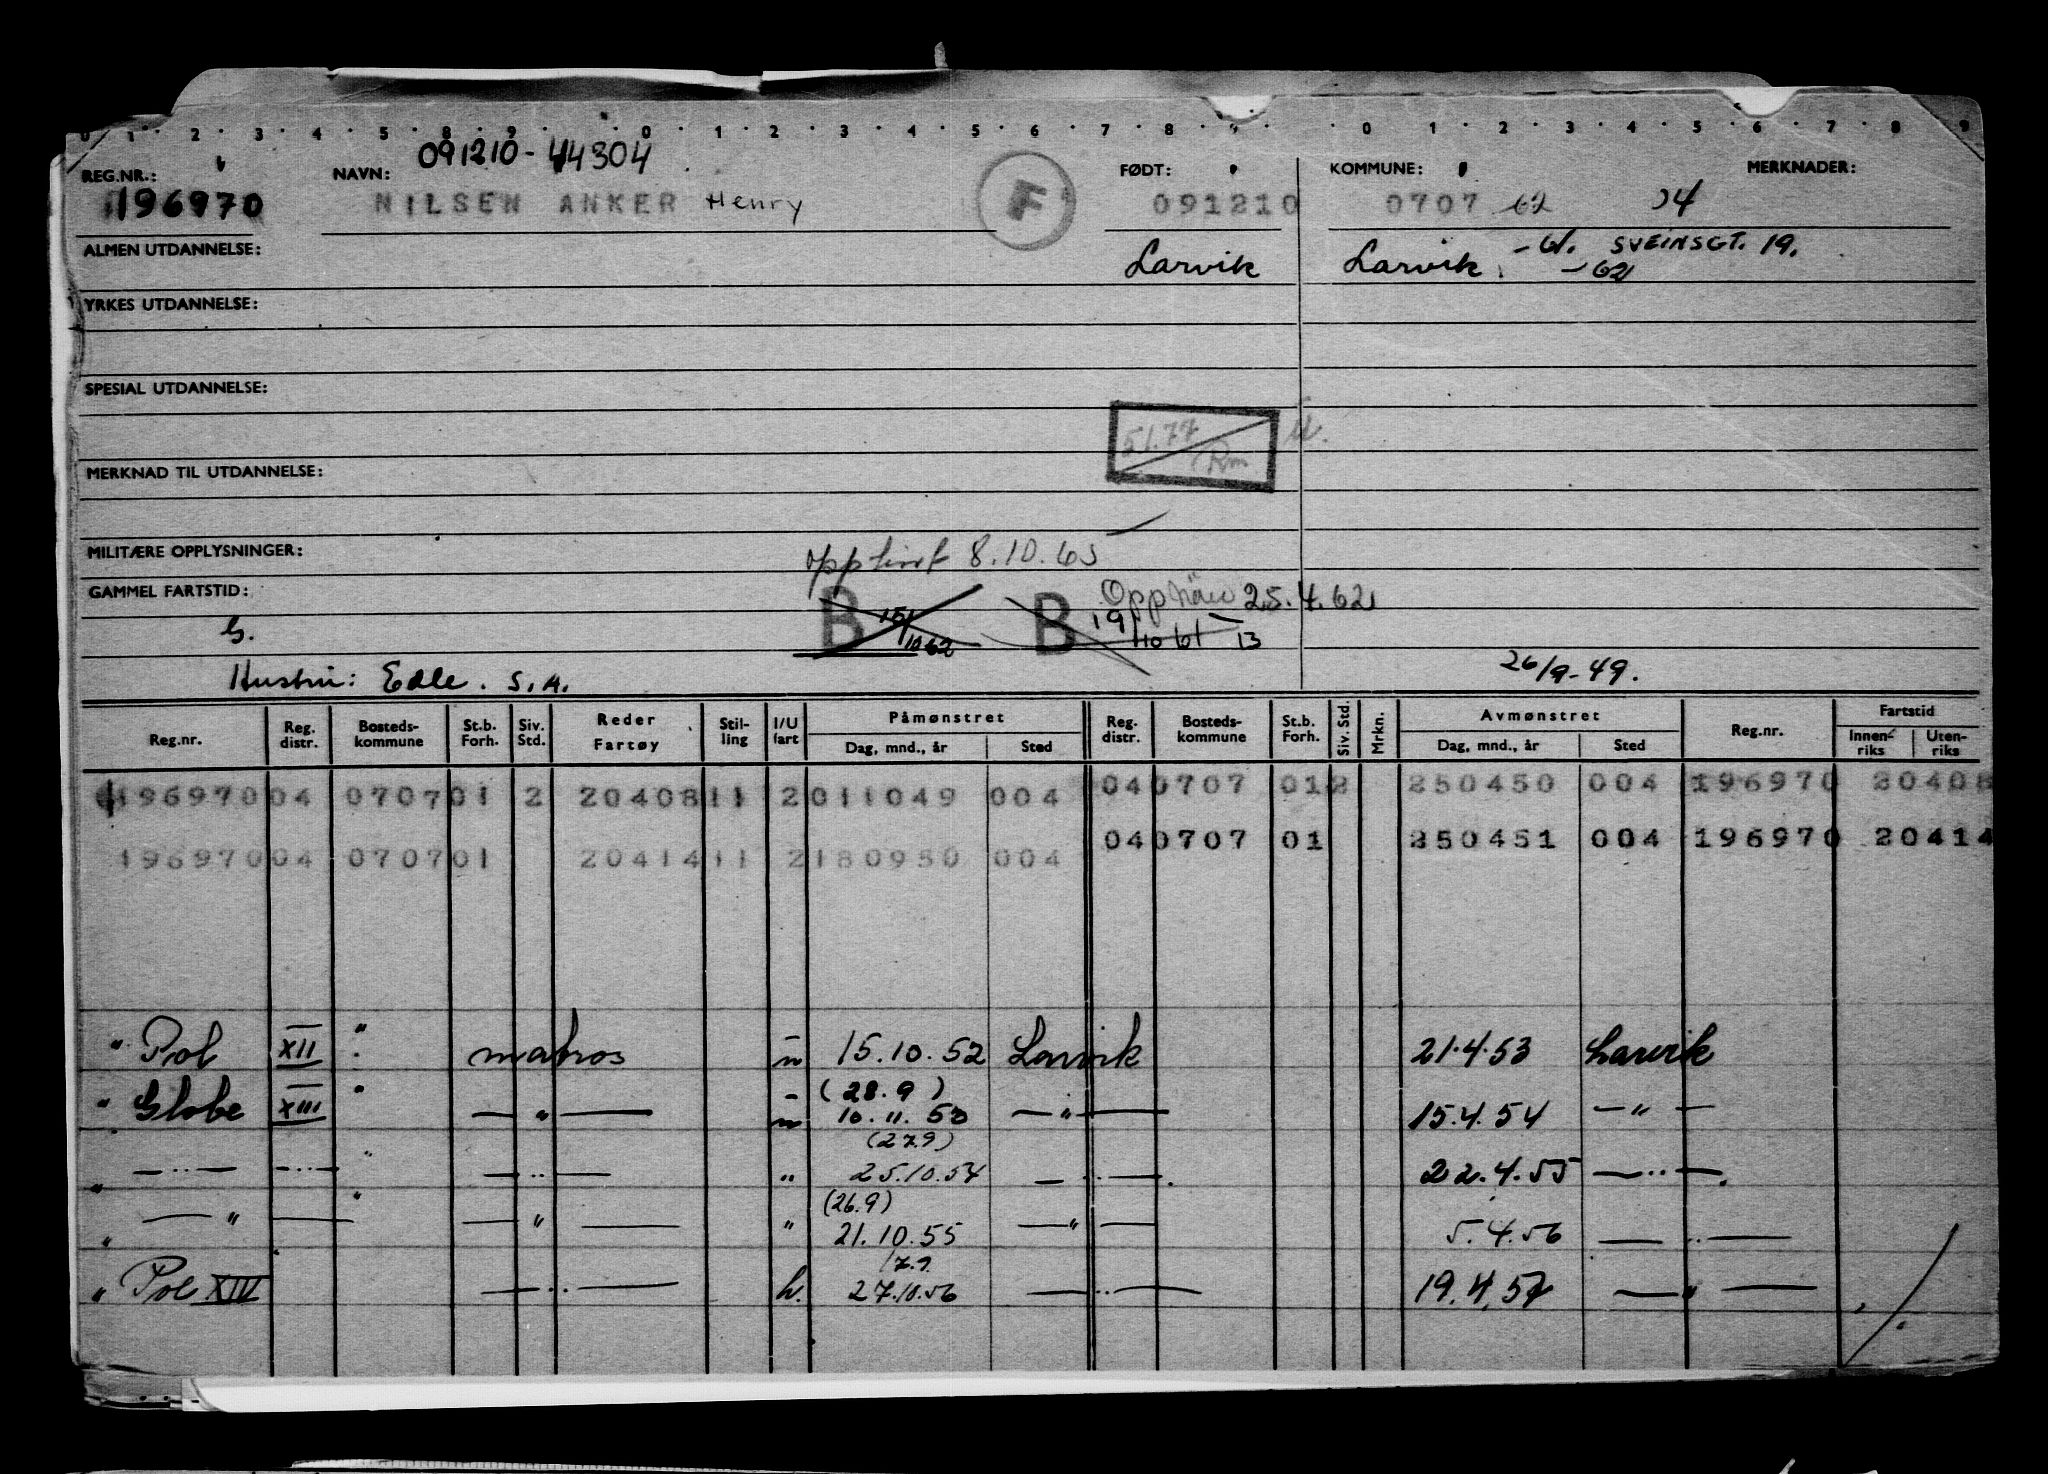 0 · 1 · 2 · 3 · 4 · 5 · 8 · 9 · 0 · 1 · 2 · 3 · 4 · 5 · 6 · 7 · 8 · 9 · 0 · 1 · 2 · 3 · 4 · 5 · 6 · 7 · 8 · 9
091210-44304
REG.NR.: NAVN: FØDT: KOMMUNE: MERKNADER:
196970 NILSEN ANKER Henry F 091210 0707 62 04
ALMEN UTDANNELSE: Larvik Larvik - 61. SVEINSGT. 19.
- 62
YRKES UTDANNELSE:
SPESIAL UTDANNELSE:
51.77
Rm
MERKNAD TIL UTDANNELSE:
MILITÆRE OPPLYSNINGER: 8.10.63
GAMMEL FARTSTID: B 15/10 62 B Opphäv 25.4.62
G. 19/10 61 - 13
Hustru: Edle. S.A. 26/9-49.
Reg.nr. Reg. distr. Bosteds-kommune St.b. Forh. Siv. Std. Reder Fartøy Stil-ling I/U fart Påmønstret Dag, mnd., år Sted Reg. distr. Bosteds-kommune St.b. Forh. Siv. Std. Mrkn. Avmønstret Dag, mnd., år Sted Reg.nr. Fartstid Innen-riks Uten-riks
196970 04 0707 01 2 20408 11 2 011049 004 04 0707 01 2 250450 004 196970 20408
196970 04 0707 01 20414 11 2 180950 004 04 0707 01 250451 004 196970 20414
" Pol XII " matros u 15.10.52 Larvik 21.4.53 Larvik
(28.9)
" Globe XIII " — " — u 10.11.53 — " — 15.4.54 — " —
(27.9)
" — " — — " — " — " — " 25.10.54 — " — 22.4.55 — " —
(26.9)
" — " — " — " — " 21.10.55 — " — 5.4.56 — " —
17.9.
" Pol XIV — " — h. 27.10.56 — " — 19.4.57 — " —